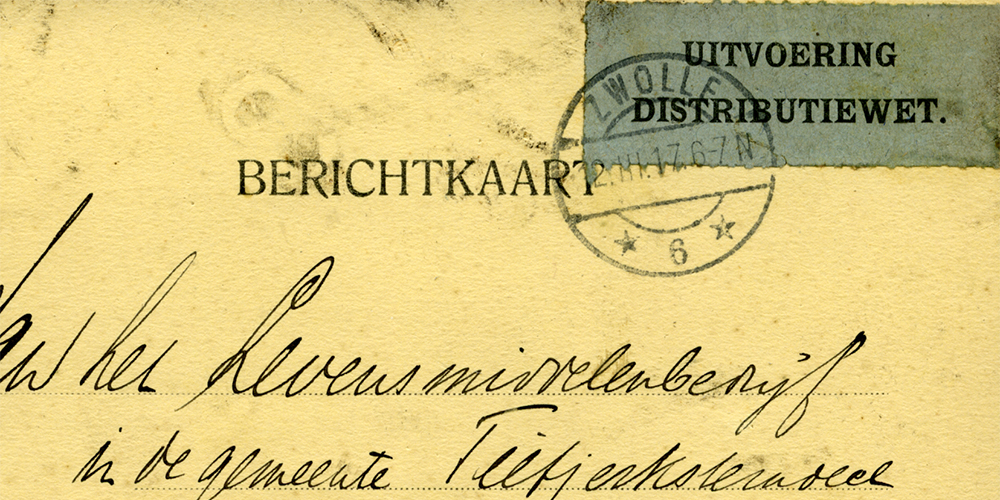 UITVOERING
DISTRIBUTIEWET.
ZWOLLE
12.III.17.6-7 N
6
BERICHTKAART
Aan het Levensmiddelenbedrijf
in de gemeente Tietjerksteradeel